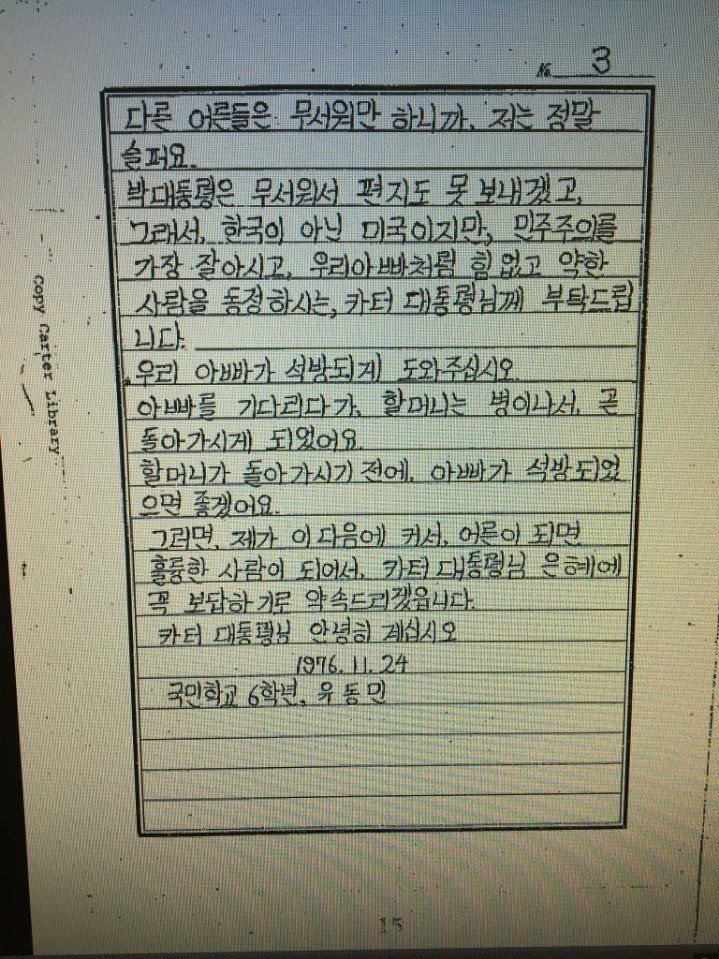 No. 3
다른 어른들은 무서워만 하니까, 저는 정말
슬퍼요.
박대통령은 무서워서 편지도 못 보내겠고,
그래서, 한국이 아닌 미국이지만, 민주주의를
가장 잘아시고, 우리아빠처럼 힘없고 약한
사람을 동정하시는, 카터 대통령님께 부탁드립
니다.
우리 아빠가 석방되게 도와주십시오
아빠를 기다리다가, 할머니는 병이나서, 곧
돌아가시게 되었어요
할머니가 돌아가시기 전에, 아빠가 석방되었
으면 좋겠어요.
그러면, 제가 이 다음에 커서, 어른이 되면
훌륭한 사람이 되어서, 카터 대통령님 은혜에
꼭 보답하기로 약속드리겠읍니다.
카터 대통령님 안녕히 계십시오
1976. 11. 24
국민학교 6학년, 유동민
Copy Carter Library
15